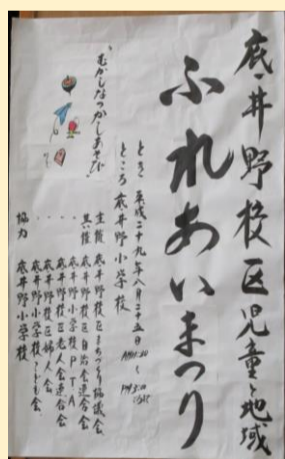 底井野校区児童・地域
ふれあいまつり
とき 平成二十九年八月二十五日
ところ 底井野小学校
"むかしなつかしあそび"
主催 底井野校区まちづくり協議会
共催 底井野校区自治会連合会
〃 底井野小学校PTA
〃 底井野校区老人会連合会
〃 底井野校区婦人会
〃 底井野小学校こども会
協力 底井野小学校